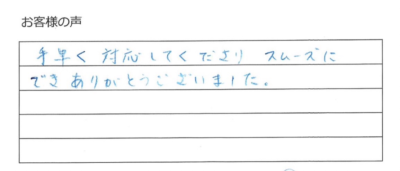 お客様の声
手早く対応してくださり スムーズに
できありがとうございました。